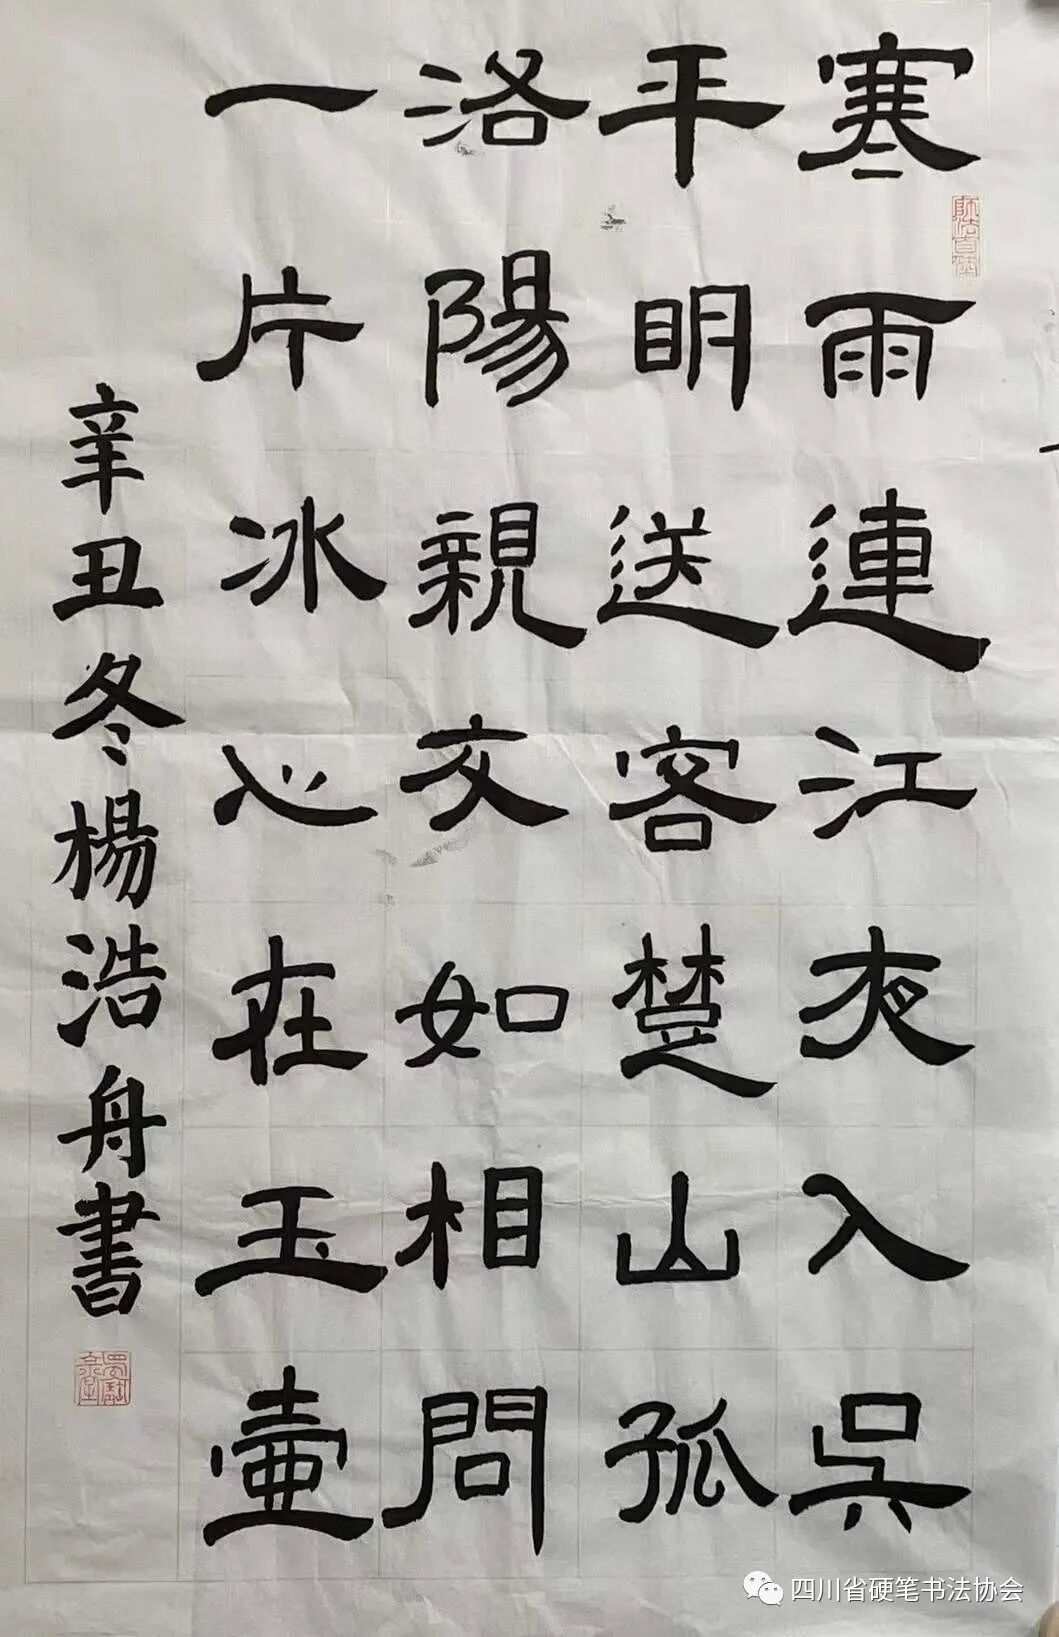 寒雨連江夜入吳
平明送客楚山孤
洛陽親友如相問
一片冰心在玉壺
辛丑冬楊浩舟書
四川省硬笔书法协会